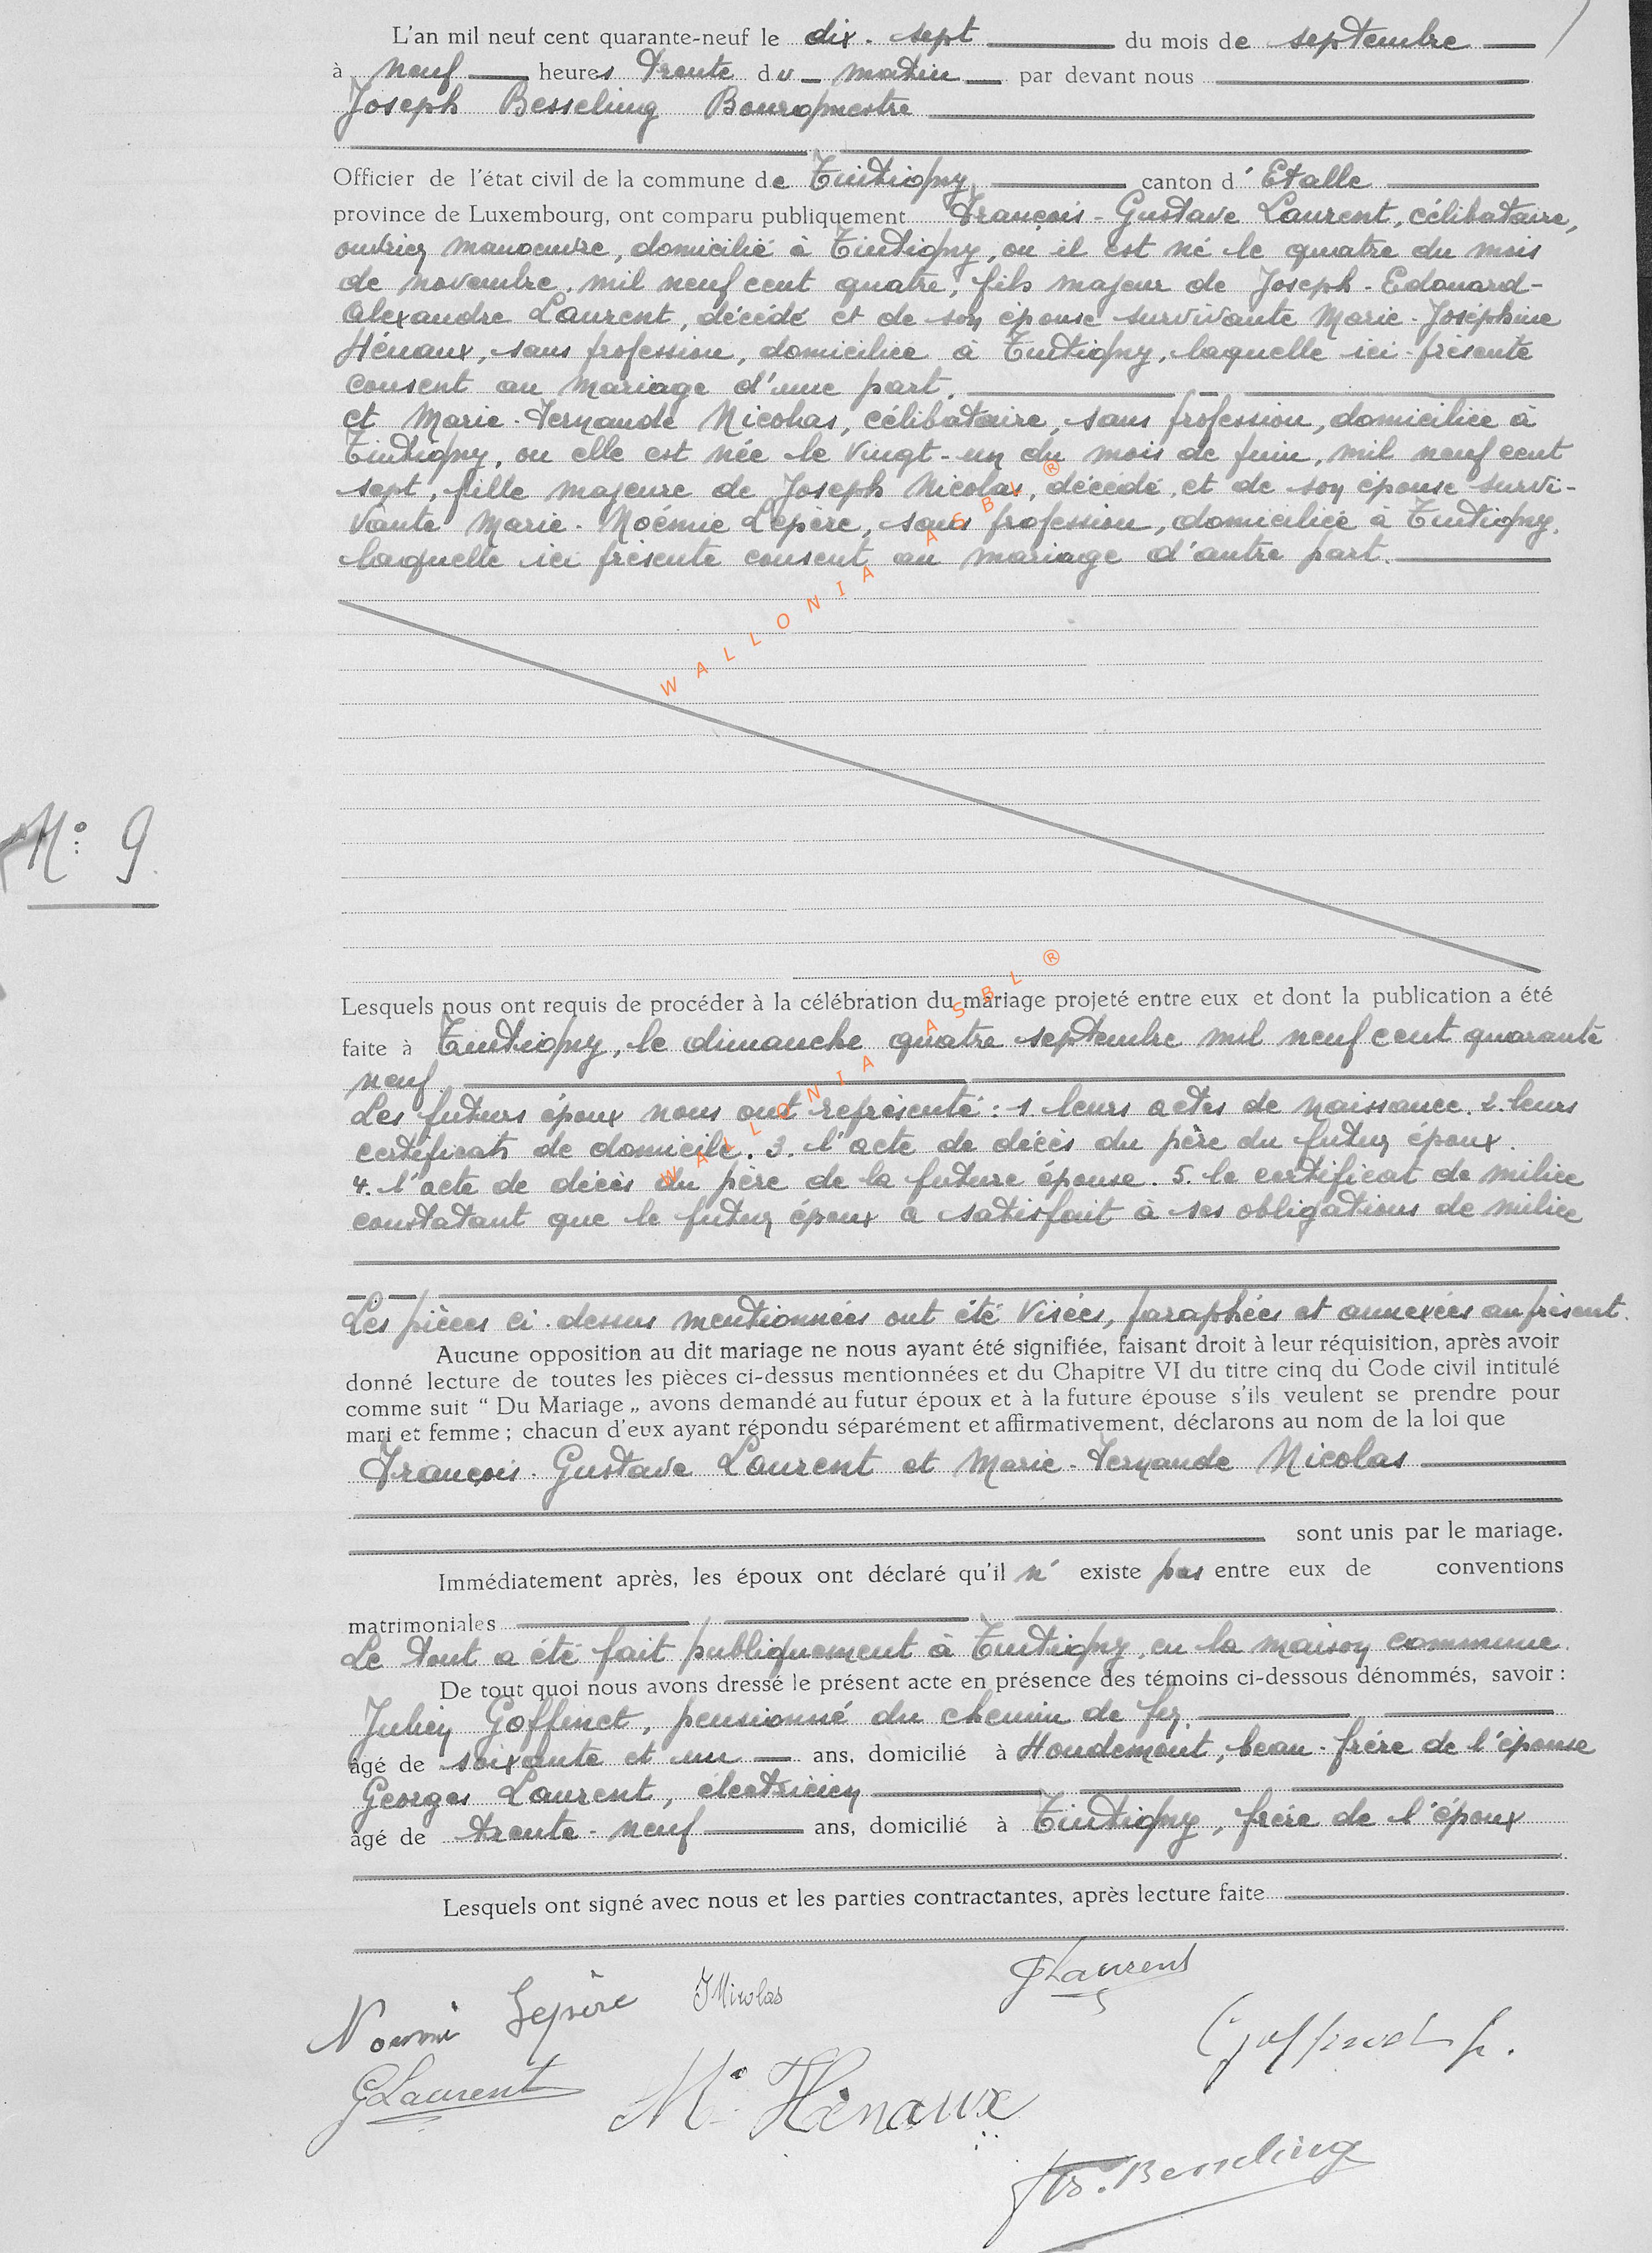 L'an mil neuf cent quarante-neuf le dix-sept du mois de septembre
à neuf heures trente du matin par devant nous
Joseph Besseling Bourgmestre
Officier de l'état civil de la commune de Tintigny canton d'Etalle
province de Luxembourg, ont comparu publiquement François-Gustave Laurent, célibataire,
ouvrier manoeuvre, domicilié à Tintigny, ou il est né le quatre du mois
de novembre, mil neuf cent quatre, fils majeur de Joseph-Edouard-
Alexandre Laurent, décédé et de son épouse survivante Marie-Joséphine
Hénaux, sans profession, domiciliée à Tintigny, laquelle ici-présente
consent au mariage d'une part.
et Marie-Fernande Nicolas, célibataire, sans profession, domiciliée à
Tintigny, ou elle est née le vingt-un du mois de juin, mil neuf cent
sept, fille majeure de Joseph Nicolas, décédé, et de son épouse survi-
vante Marie-Noémie Lepère, sans profession, domiciliée à Tintigny,
laquelle ici présente consent au mariage d'autre part.
WALLONIA ASBL ®
N° 9.
Lesquels nous ont requis de procéder à la célébration du mariage projeté entre eux et dont la publication a été
faite à Tintigny, le dimanche quatre septembre mil neuf cent quarante
neuf
WALLONIA ASBL ®
Les futurs époux nous ont représenté : 1 leurs actes de naissance. 2. leurs
certificats de domicile. 3. l'acte de décès du père du futur époux.
4. l'acte de décès du père de la future épouse. 5. le certificat de milice
constatant que le futur époux a satisfait à ses obligations de milice
Les pièces ci-dessus mentionnées ont été visées, paraphées et annexées au présent.
Aucune opposition au dit mariage ne nous ayant été signifiée, faisant droit à leur réquisition, après avoir
donné lecture de toutes les pièces ci-dessus mentionnées et du Chapitre VI du titre cinq du Code civil intitulé
comme suit “ Du Mariage „ avons demandé au futur époux et à la future épouse s'ils veulent se prendre pour
mari et femme ; chacun d'eux ayant répondu séparément et affirmativement, déclarons au nom de la loi que
François-Gustave Laurent et Marie-Fernande Nicolas
sont unis par le mariage.
Immédiatement après, les époux ont déclaré qu'il n'existe pas entre eux de conventions
matrimoniales
Le tout a été fait publiquement à Tintigny, en la maison commune.
De tout quoi nous avons dressé le présent acte en présence des témoins ci-dessous dénommés, savoir :
Julien Goffinet, pensionné du chemin de fer.
âgé de soixante et un ans, domicilié à Houdemont, beau-frère de l'épouse
Georges Laurent, électricien
âgé de trente-neuf ans, domicilié à Tintigny, frère de l'époux
Lesquels ont signé avec nous et les parties contractantes, après lecture faite
Noémi Lepère FNicolas GLaurent
Goffinet J.
GLaurent Me Hénaux
Jos. Besseling